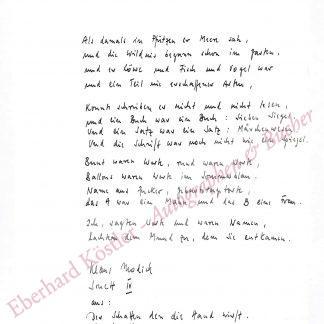 Als damals in Pfützen er Meere sah,
und die Wildnis begann schon im Garten,
und er Löwe und Fisch und Vogel war
und ein Teil nie erschaffener Arten,
Konnt schreiben er nicht und nicht lesen,
und ein Buch war ein Buch: sieben Siegel
Und ein Satz war ein Satz: Märchenwesen
Und die Schrift war noch nicht wie ein Spiegel.
Bunt waren Worte, rund waren Worte,
Ballons waren Worte im
Name aus Zucker, Geburtstagstorte,
das A war ein Mann und das B eine Frau.
Ich, sagten Worte und waren Namen,
dem Mund zu, dem sie entkamen.
Klaus Modick
Sonett IV
aus:
Der Schatten den die Hand wirft.
Eberhard Köstler - Autographen & Bücher